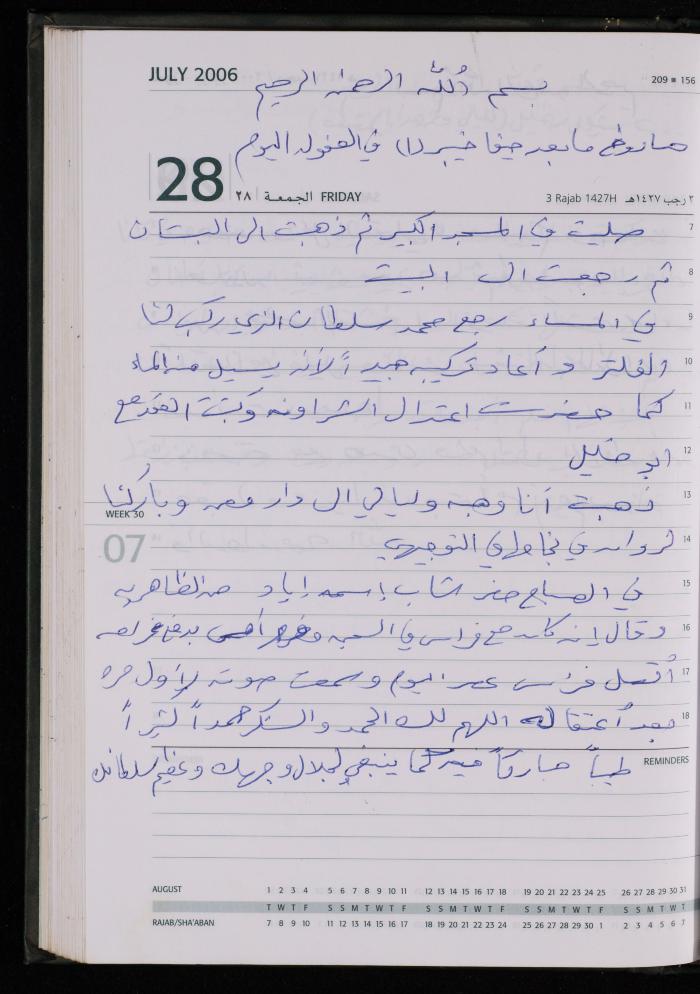 JULY 2006
بسم الله الرحمن الرحيم
209 ■ 156
ما بعد حيفا خيبر (1) في العفولة اليوم
28
الجمعة ٢٨ FRIDAY
3 Rajab 1427H ٣ رجب ١٤٢٧هـ
7 صليت في المسجد الكبير ثم ذهبت الى البستان
8 ثم رجعت الى البيت
9 في المساء رجع محمد سلطان الذي ركب لنا
10 الفلتر و أعاد تركيبه جيد أ لأنه يسيل منه الماء
11 كما حضرت اعتدال الشراونه وكتبت العقد مع
12 ابو خليل
13 ذهبت أنا وهبه وليالي الى دار عمه وباركنا
WEEK 30
07
14 في نجاح في التوجيهي
15 في الصباح حضر شاب إسمه إياد من الظاهريه
16 وقال إنه كان مع فراس في السجن
17 أتصل فراس عصر اليوم وسمعت صوته لأول مره
18 بعد أعتقاله اللهم لك الحمد والشكر حمداً كثيراً
REMINDERS طيباً مباركاً فيه كما ينبغي لجلال وجهك وعظيم سلطانك
AUGUST 1 2 3 4 5 6 7 8 9 10 11 12 13 14 15 16 17 18 19 20 21 22 23 24 25 26 27 28 29 30 31
T W T F S S M T W T F S S M T W T F S S M T W T F S S M T W T
RAJAB/SHA'ABAN 7 8 9 10 11 12 13 14 15 16 17 18 19 20 21 22 23 24 25 26 27 28 29 30 1 2 3 4 5 6 7